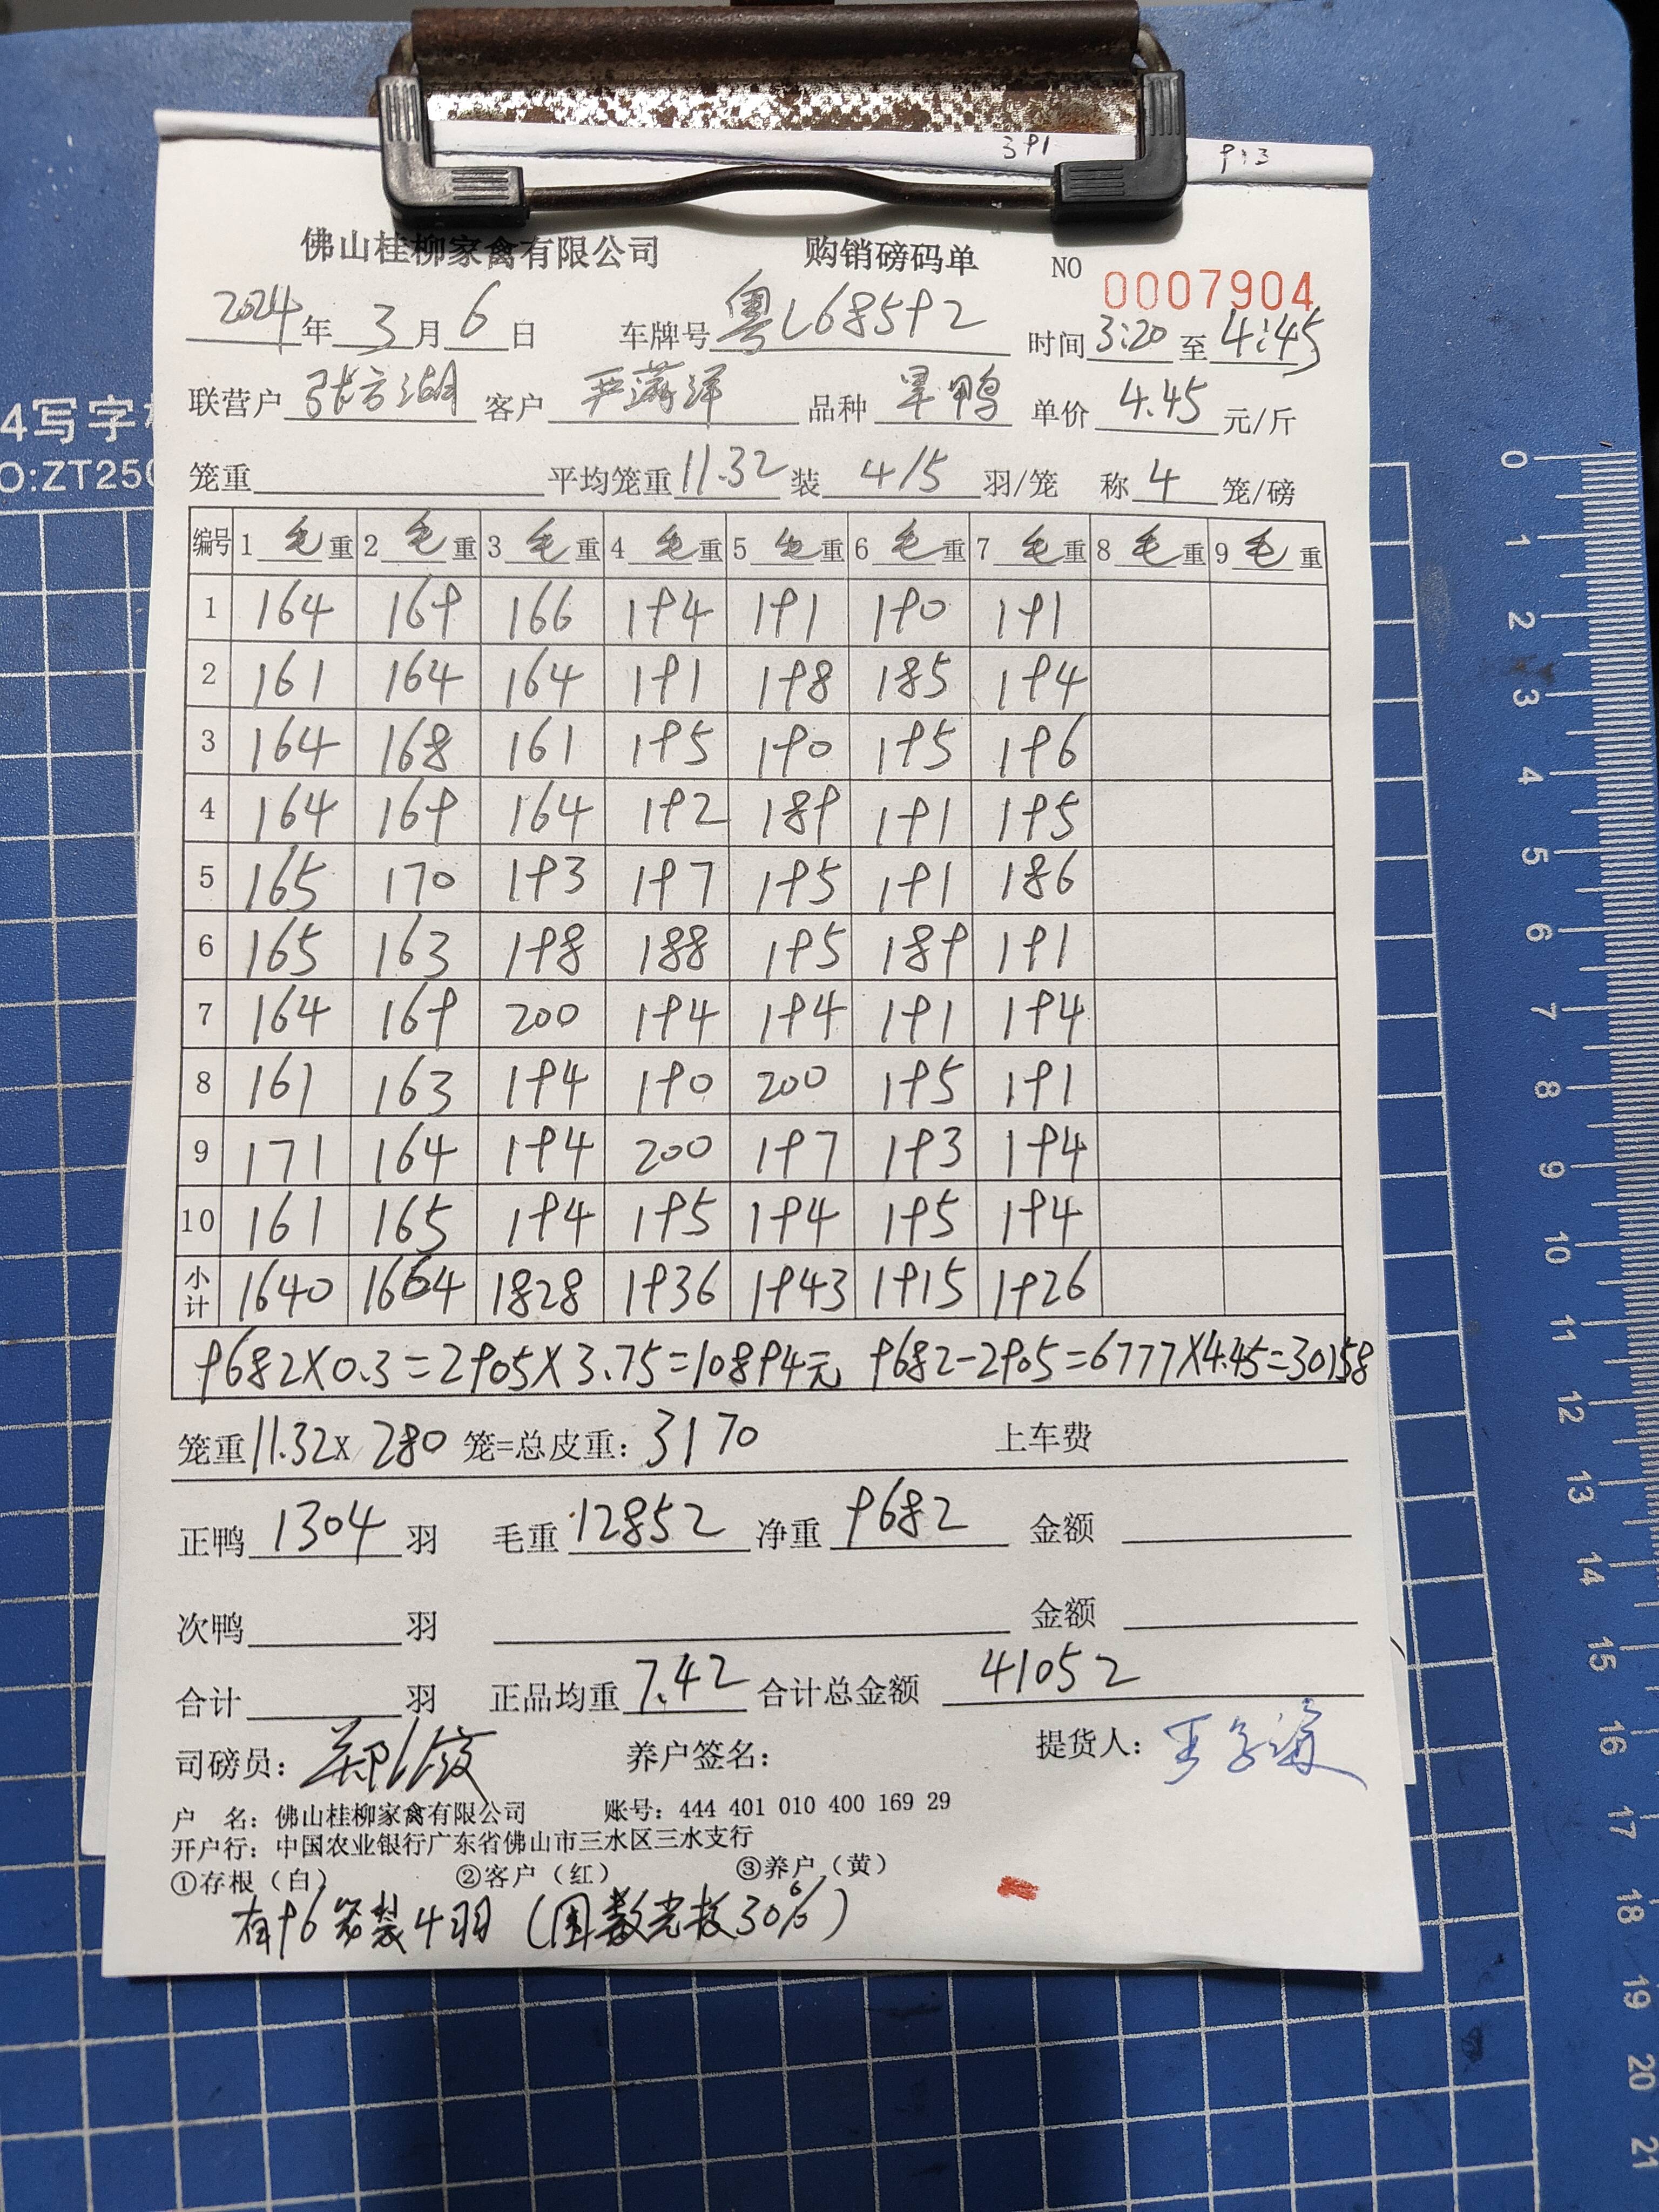 391 9:3
佛山桂柳家禽有限公司 购销磅码单 NO 0007904
2024年3月6日 车牌号 粤L68592 时间 3:20 至 4:45
联营户 张方湖 客户 严满洋 品种 旱鸭 单价 4.45 元/斤
笼重 平均笼重 11.32 装 4/5 羽/笼 称 4 笼/磅
编号 1 毛重 2 毛重 3 毛重 4 毛重 5 毛重 6 毛重 7 毛重 8 毛重 9 毛重
1 164 169 166 194 191 190 191
2 161 164 164 191 198 185 194
3 164 168 161 195 190 195 196
4 164 169 164 192 189 191 195
5 165 170 193 197 195 191 186
6 165 163 198 188 195 189 191
7 164 169 200 194 194 191 194
8 161 163 194 190 200 195 191
9 171 164 194 200 197 193 194
10 161 165 194 195 194 195 194
小计 1640 1664 1828 1936 1943 1915 1926
9682×0.3=2905×3.75=10894元 9682-2905=6777×4.45=30158
笼重 11.32× 280 笼=总皮重: 3170 上车费
正鸭 1304 羽 毛重 12852 净重 9682 金额
次鸭 羽 金额
合计 羽 正品均重 7.42 合计总金额 41052
司磅员: 养户签名: 提货人:
户 名: 佛山桂柳家禽有限公司 账号: 444 401 010 400 169 29
开户行: 中国农业银行广东省佛山市三水区三水支行
①存根（白） ②客户（红） ③养户（黄）
有96笼装4羽 (30%)
4写字
O:ZT250
0
1
2
3
4
5
6
7
8
9
10
11
12
13
14
15
16
17
18
19
20
21